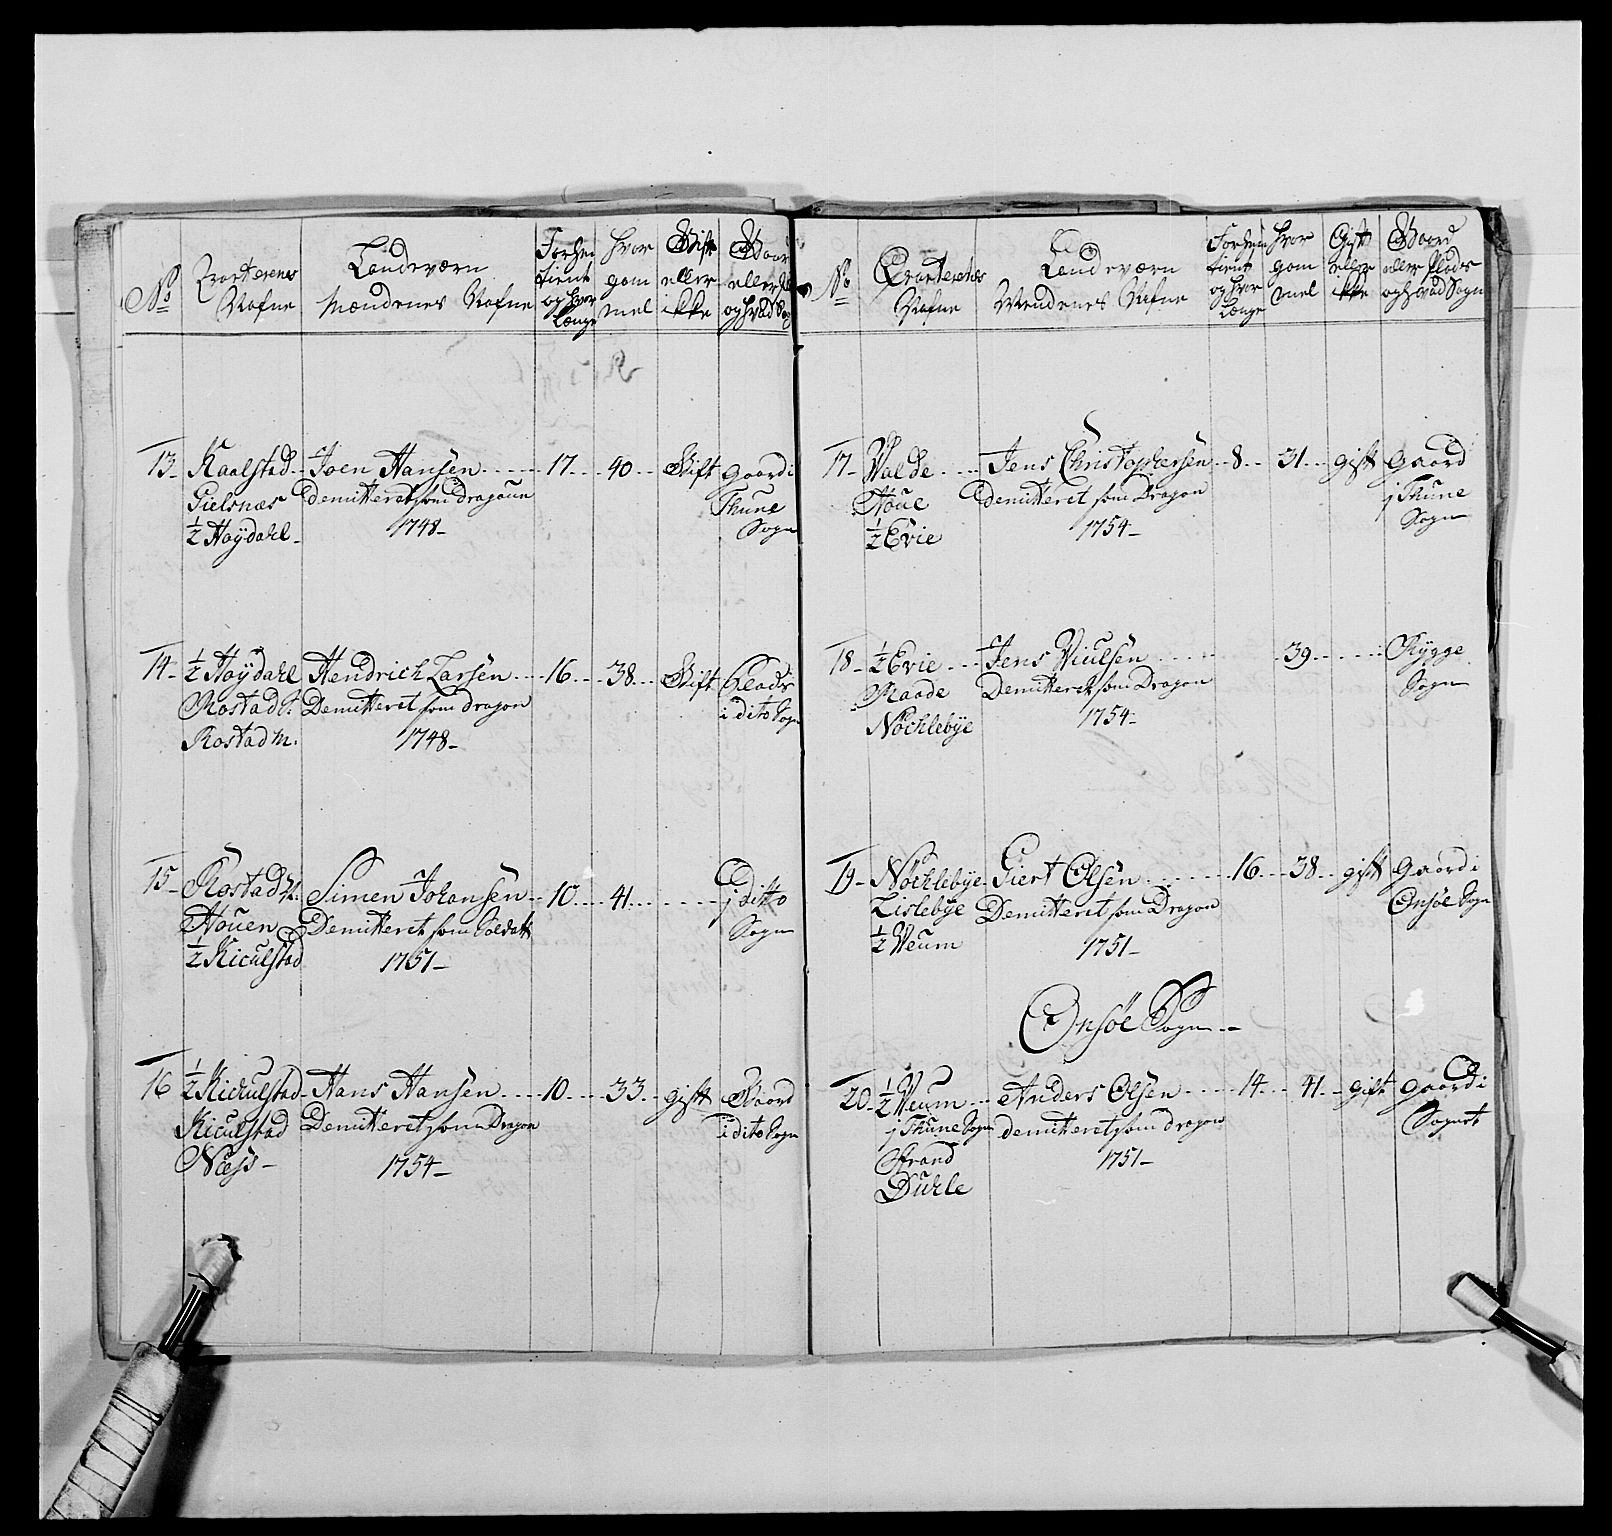 No
Qvarterenes
Nafne
Landeværn
Mændenes Nafne
Forhen
tient
og hvor
Længe
hvor
gam
mel
Gift
eller
ikke
Gaard
eller
og hvad Sogn
13 Kaalstad Joen Hansen 17 40 Gift gaard i
Gielsnæs demitteret som Dragoun Thune
½ Høydahl 1748 Sogn
14 ½ Høydahl Hendrich Larsen 16 38 Gift
Rostad S. Demitteret som dragon i dito Sogn
Rostad M. 1748
15 Rostad N. Simen Johansen 10 41 i ditto
Houen Demitteret som Soldatt Sogn
½ Kiculstad 1751
16 ½ Kickulstad Hans Hansen 10 33 gift Gaard
Kiculstad Demitteret som Dragon i dito Sogn
Næss 1754
No
Qvarterenes
Nafne
Landeværn
Mendenes Nafne
Forhen
tient
og hvor
Længe
hvor
gam
mel
Gift
eller
ikke
Gaard
eller Plads
og hvad Sogn
17 Valde Jens Christophersen 8 31 gift gaard
Houe demitteret som Dragon i Thune
½ Evie 1754 Sogn
18 ½ Evie Jens Niulsen 39 Rygge
Raade Demitteret som Dragon Sogn
Nøchlebÿe 1754
19 Nøchlebÿe Giert Olsen 16 38 gift gaard i
Lislebÿe Demitteret som Dragon Onsøe Sogn
½ Veum 1751
Onsøe Sogn
20 ½ Veum Anders Olsen 14 41 gift gaard i
i Thune Sogn demitteret som dragon Sognet
Strand 1751
Duhle